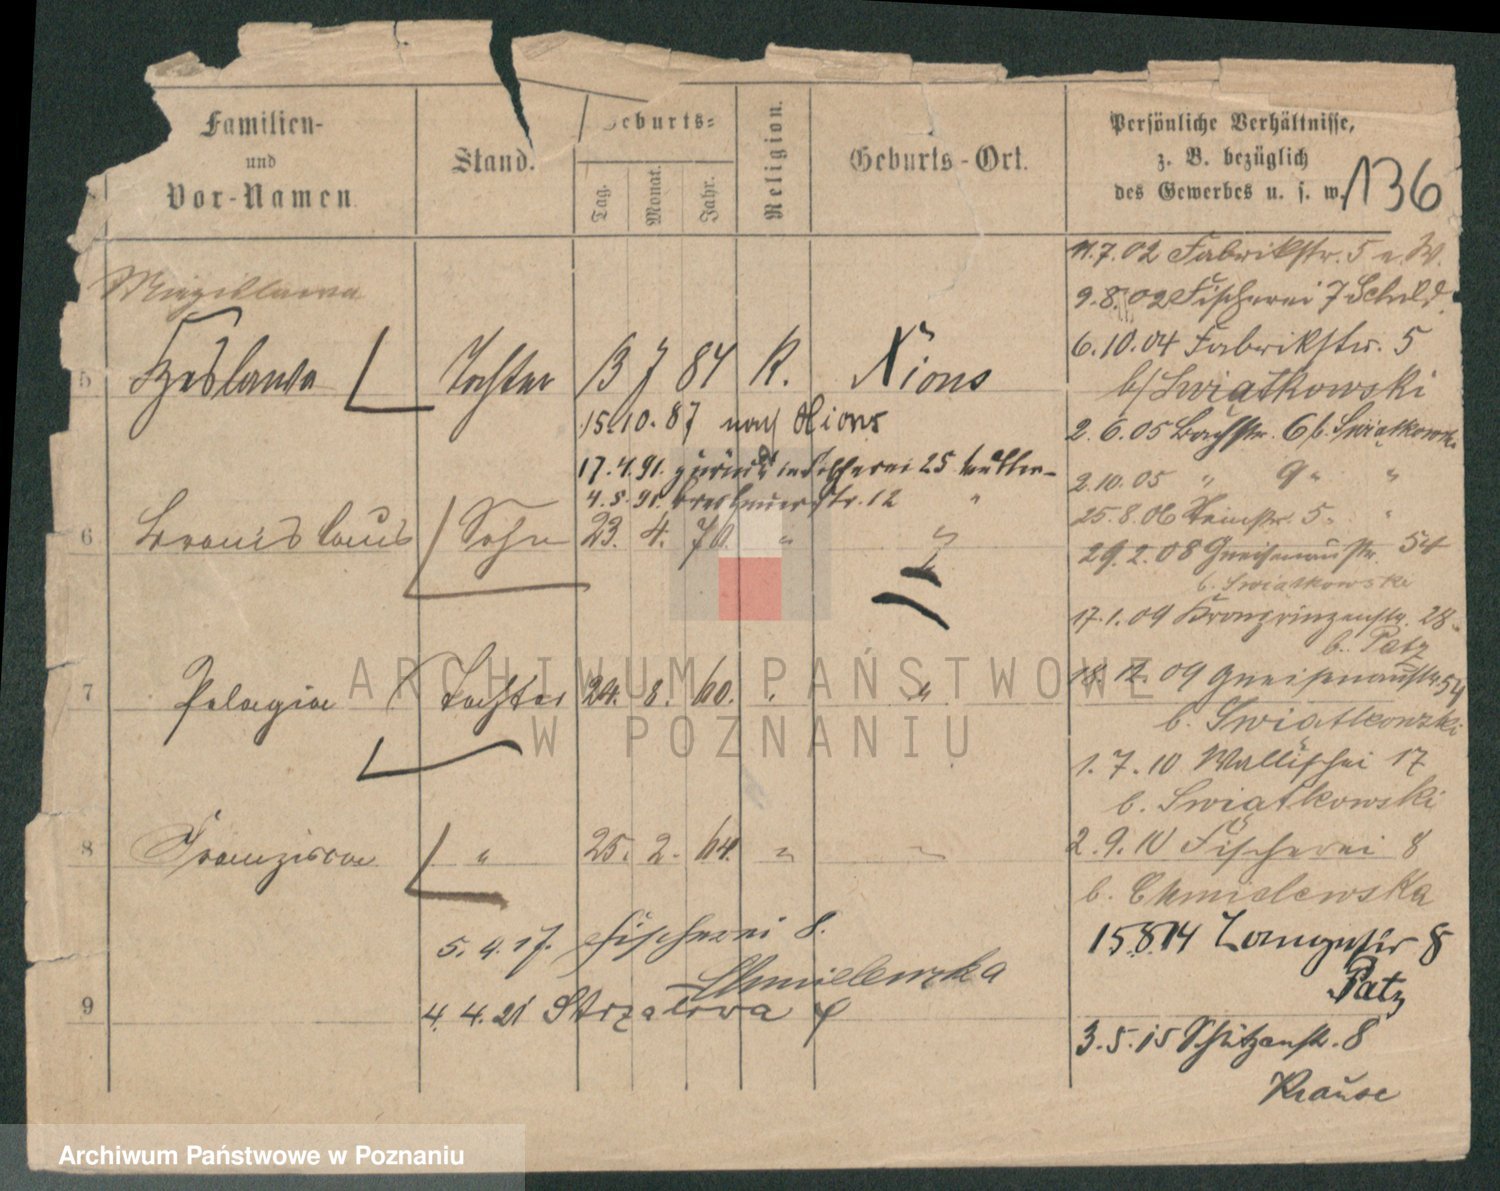 Familien-
und
Vor-Namen.
Stand.
Geburts-
Tag.
Monat.
Jahr.
Religion.
Geburts-Ort.
Persönliche Verhältnisse,
z. B. bezüglich
des Gewerbes u. s. w.
136
11.7.02 Fabrikstr. 5 n. W.
9.8.02 Fischerei 7 Schild.
6.10.04 Fabrikstr. 5
b/Swiatkowski
2.6.05 Bachstr. 6 b. Swiatkowski
2.10.05 " 9 " "
25.8.06 5. "
29.2.08 Gneisenaustr. 54
b. Swiatkowski
17.1.09 Kronprinzenstr. 28.
b. Patz
18.12.09 Gneisenaustr. 54
b. Swiatkowski
1.7.10 Wallischei 17
b. Swiatkowski
2.9.10 Fischerei 8
b. Chmielewska
15.8.14 Langestr 8
Patz
3.5.15 Schützenstr. 8
Krause
5 Czeslawa Tochter 13 7 84 K. Xions
15.10.87 nach Xions
17.4.91. zurück Fischerei 25 Mutter-
4.5.91. Breslauerstr. 12 "
6 Bronislaus Sohn 23. 4. 70. " "
7 Pelagia Tochter 24. 8. 60. " "
8 Franziska " 25. 2. 64. " "
5.4.17. Fischerei 8.
Chmielewska
9
4.4.21 Strzalowa 4
ARCHIWUM PAŃSTWOWE
W POZNANIU
Archiwum Państwowe w Poznaniu